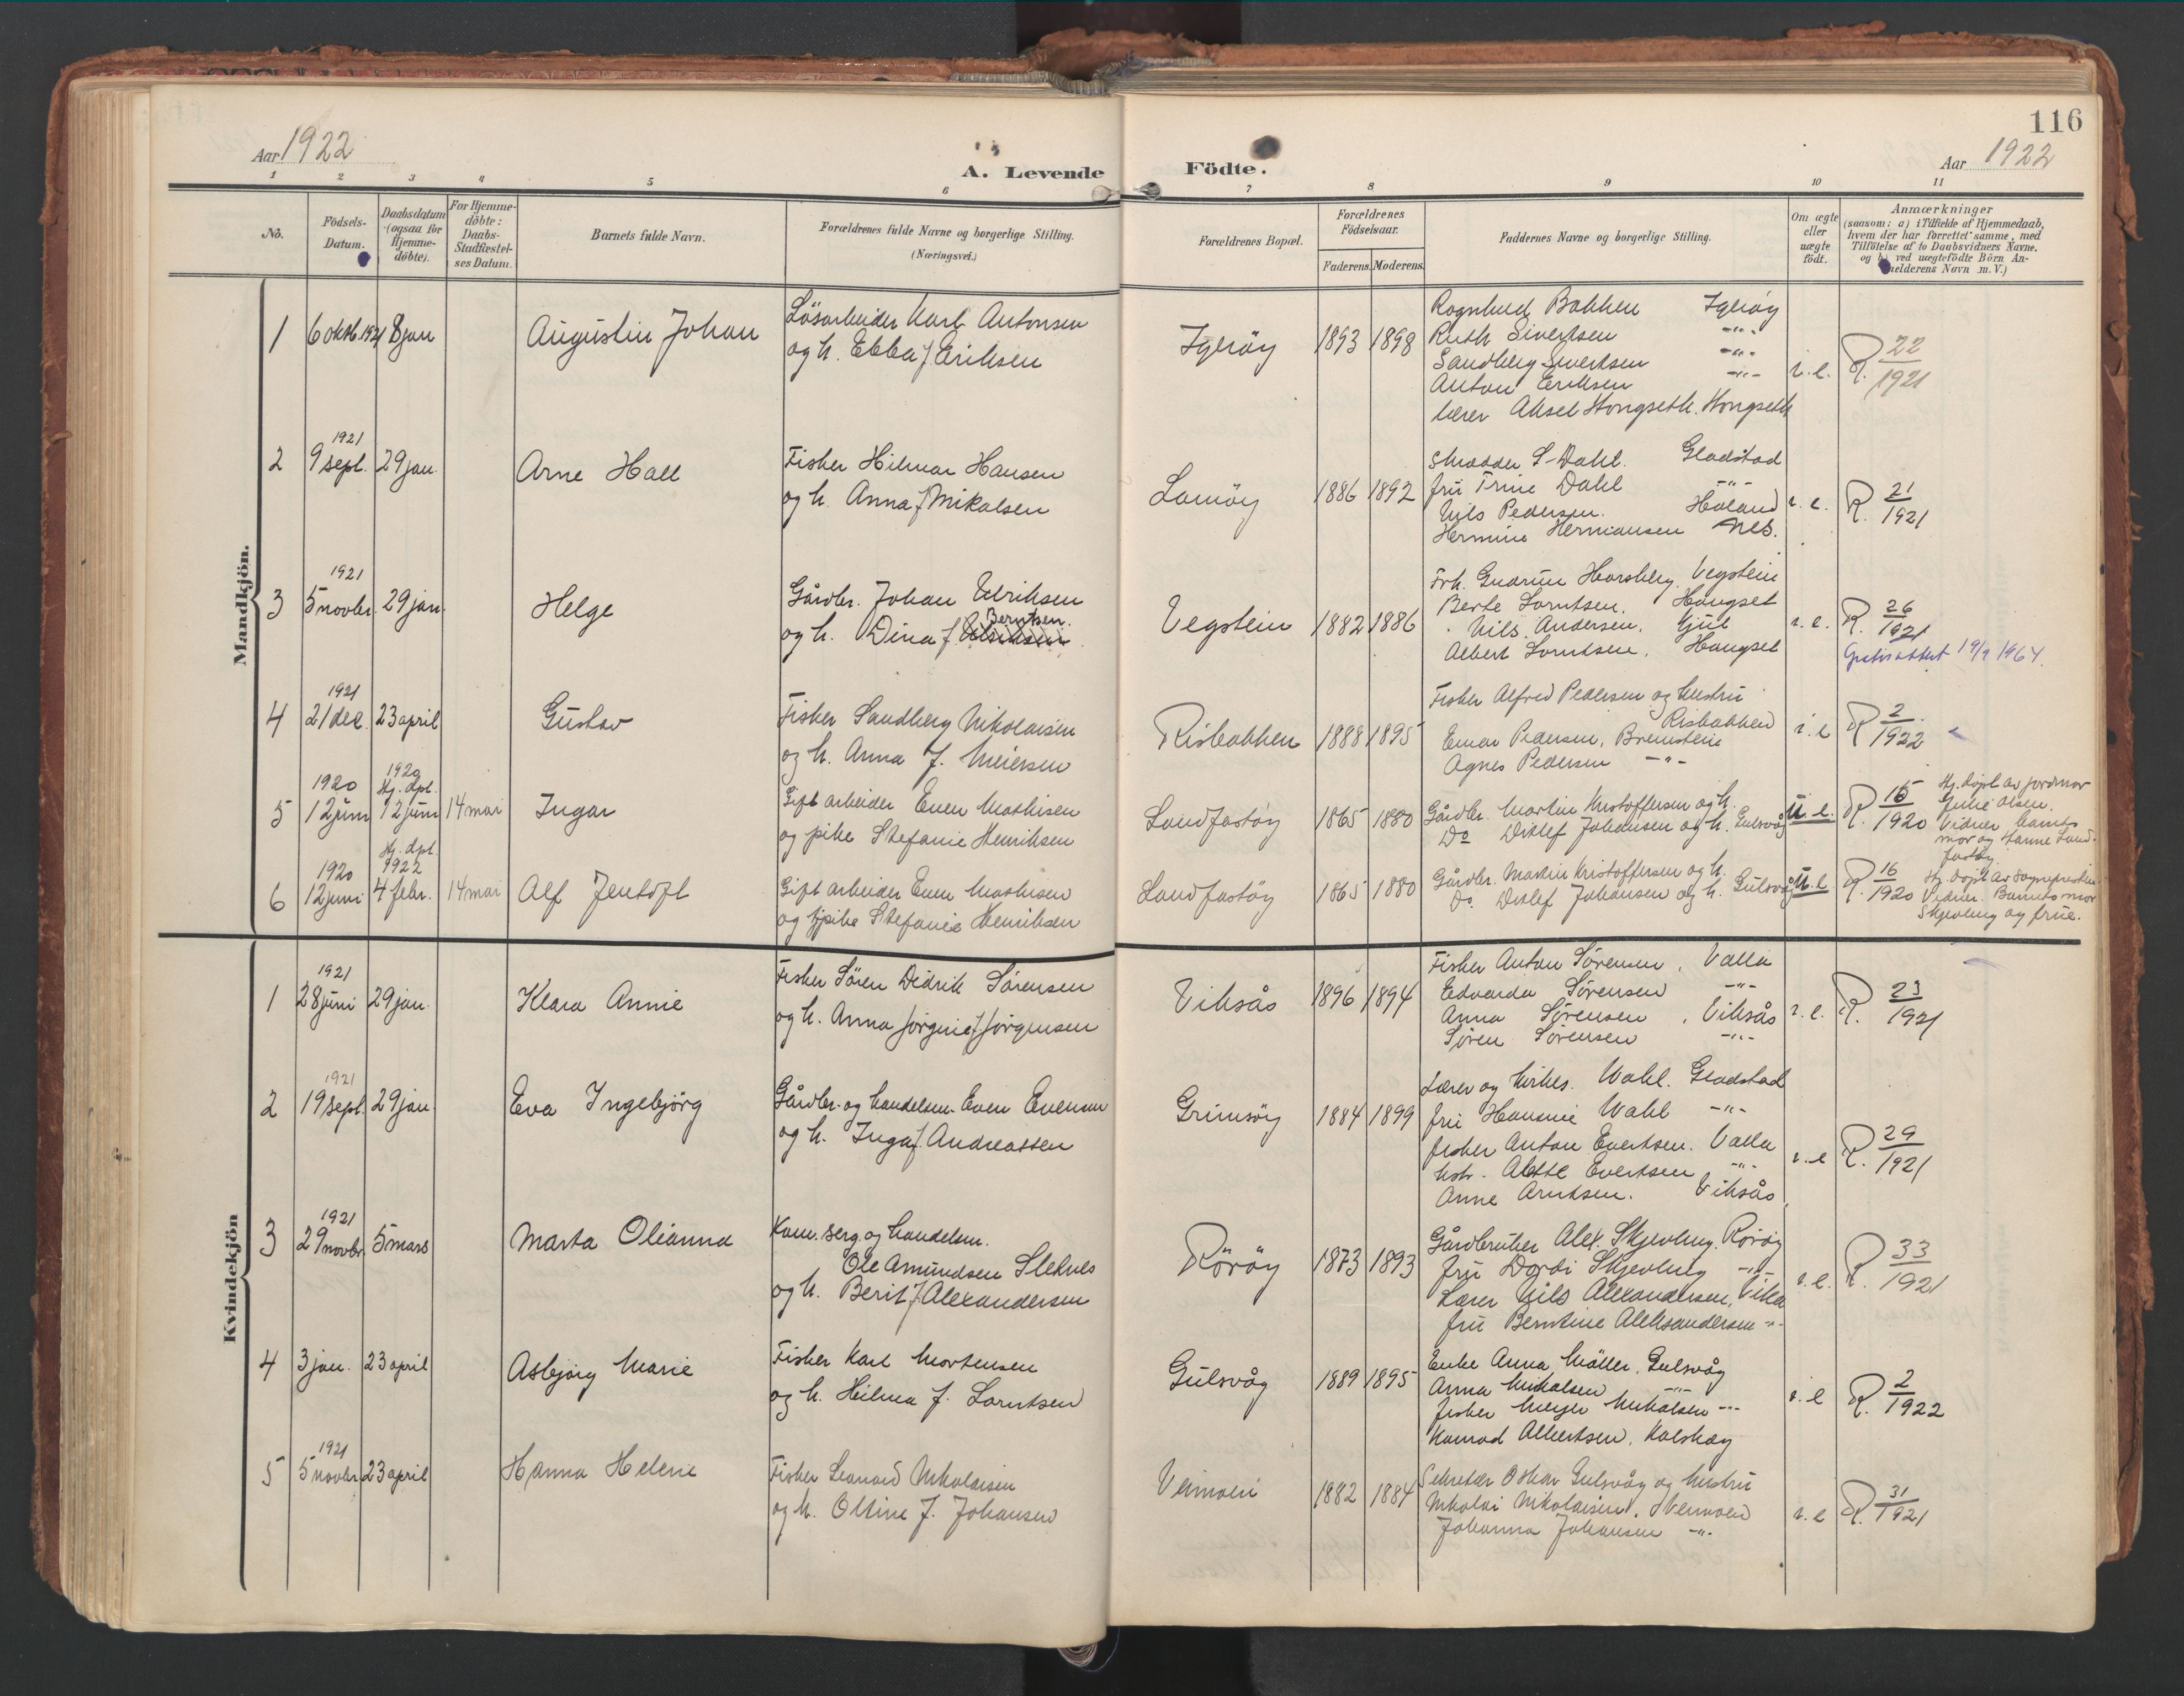 Aar 1922
A. Levende
Födte.
116
Aar 1922
1 2 3 4 5 6 7 8 9 10 11
No.
Födsels-
Datum.
Daabsdatum
(ogsaa for
Hjemme-
döbte).
For Hjemme-
döbte:
Daabs-
Stadfæstel-
ses Datum.
Barnets fulde Navn.
Forældrenes fulde Navne og borgerlige Stilling.
(Næringsvei.)
Forældrenes Bopæl.
Forældrenes
Födselsaar.
Faderens. Moderens.
Faddernes Navne og borgerlige Stilling.
Om ægte
eller
uægte
födt.
Anmærkninger
(saasom: a) i Tilfælde af Hjemmedaab,
hvem der har forrettet samme, med
Tilföielse af to Daabsvidners Navne,
og b) ved uægtefödte Börn An-
melderens Navn m.V.)
Mandkjön.
1
6 oktb. 1921
8 jan
Augustin Johan
Lösarbeider Karl Antonsen
og h. Ebba f. Eriksen
Igerøy
1893
1898
Ragnhild Bakken Igerøy
Ruth Sivertsen -"-
Sandberg Sivertsen -"-
Anton Eriksen -"-
lærer Aksel Hongseth. Hongseth
i.e.
R. 22
1921
2
1921
9 sept.
29 jan.
Arne Hall
Fisker Hilmar Hansen
og h. Anna f. Mikalsen
Lamøy
1886
1892
Skrædder S. Dahl. Gladstad
fru Trine Dahl -"-
Nils Pedersen. Høland
Hermine Hermansen Nes.
i.e.
R. 21
1921
3
1921
5 novbr.
29 jan.
Helge
Gårdbr. Johan Edriksen
Berntsen.
og h. Dina f.
Vegstein
1882
1886
Frk. Gudrun Horsberg. Vegstein
Berte Lorntsen. Hongset
Nils Andersen. Gjul
Albert Lorntsen. Hongset
i.e.
R. 26
1921
Gratisattest 19/9 1964.
4
1921
21 dec.
23 april
Gustav
Fisker Sandberg Nikolaisen
og h. Anna f. Meiersen
Risbakken
1888
1895
Fisker Alfred Pedersen og hustru
Risbakken
Einar Pedersen, Bremstein
Agnes Pedersen -"-
i.e
R. 2
1922
5
1920
12 juni
1920
Hj. dpt.
12 juni
14 mai
Ingar
Gift arbeider Even Mathisen
og pike Stefanie Henriksen
Landfastøy
1865
1880
Gårdbr. Martin Kristoffersen og h.
Do Ditlef Johansen og h. Gulsvåg
U.e.
R. 15
1920
Hj. døpt av jordmor
Julie Olsen.
Vidner barnets
mor og Hanne Land-
fastøy
6
1920
12 juni
Hj. dpt.
1922
4 febr.
14 mai
Alf Jentoft
Gift arbeider Even Mathisen
og pike Stefanie Henriksen
Landfastøy
1865
1880
Gårdbr. Martin Kristoffersen og h.
Do. Ditlef Johansen og h. Gulsvåg
U.e.
R. 16
1920
Hj. døpt av sognepresten.
Vidner. Barnets mor
Skjevling og frue.
Kvindekjön
1
1921
28 juni
29 jan.
Klara Annie
Fisker Sören Didrik Sörensen
og h. Anna Jörgine f. Jörgensen
Viksås
1896
1894
Fisker Anton Sørensen, Valla
Edvarda Sørensen -"-
Anna Sørensen, Viksås
Søren Sørensen -"-
i.e.
R. 23
1921
2
1921
19 sept.
29 jan.
Eva Ingebjörg
Gårdbr. og handelsm. Even Evensen
og h. Inga f. Andreassen
Grimsöy
1884
1899
Lærer og kirkes. Wahl. Gladstad
fru Hansine Wahl -"-
fisker Anton Evertsen. Valla
hstr. Alette Evertsen -"-
Anne Arntsen. Viksås,
i.e
R. 29
1921
3
1921
29 novbr.
5 mars
Marta Olianna
Kom. serg. og handelsm.
Ole Amundsen Sleknes
og h. Berit f. Alexandersen
Röröy
1873
1893
Gårdbruker Alex. Skjevling. Röröy
fru Dordi Skjevling -"-
Lærer Nils Alexandersen, Vika
fru Berntine Aleksandersen -"-
i.e.
R. 33
1921
4
3 jan.
23 april
Asbjørg Marie
Fisker Karl Mortensen
og h. Hilma f. Lorntsen
Gulsvåg
1889
1895
Enke Anna Möller. Gulsvåg
Anna Mikalsen -"-
fisker Meyer Mikalsen -"-
Konrad Albertsen. Kalskag
i.e
R. 2
1922
5
1921
5 novbr.
23 april
Hanna Helene
Fisker Leonard Nikolaisen
og h. Ottine f. Johansen
Vennoen
1882
1884
Sekretær Oskar Gulsvåg og hustru
Nikolai Nikolaisen, Vennoen
Johanna Johansen -"-
i.e
R. 31
1921